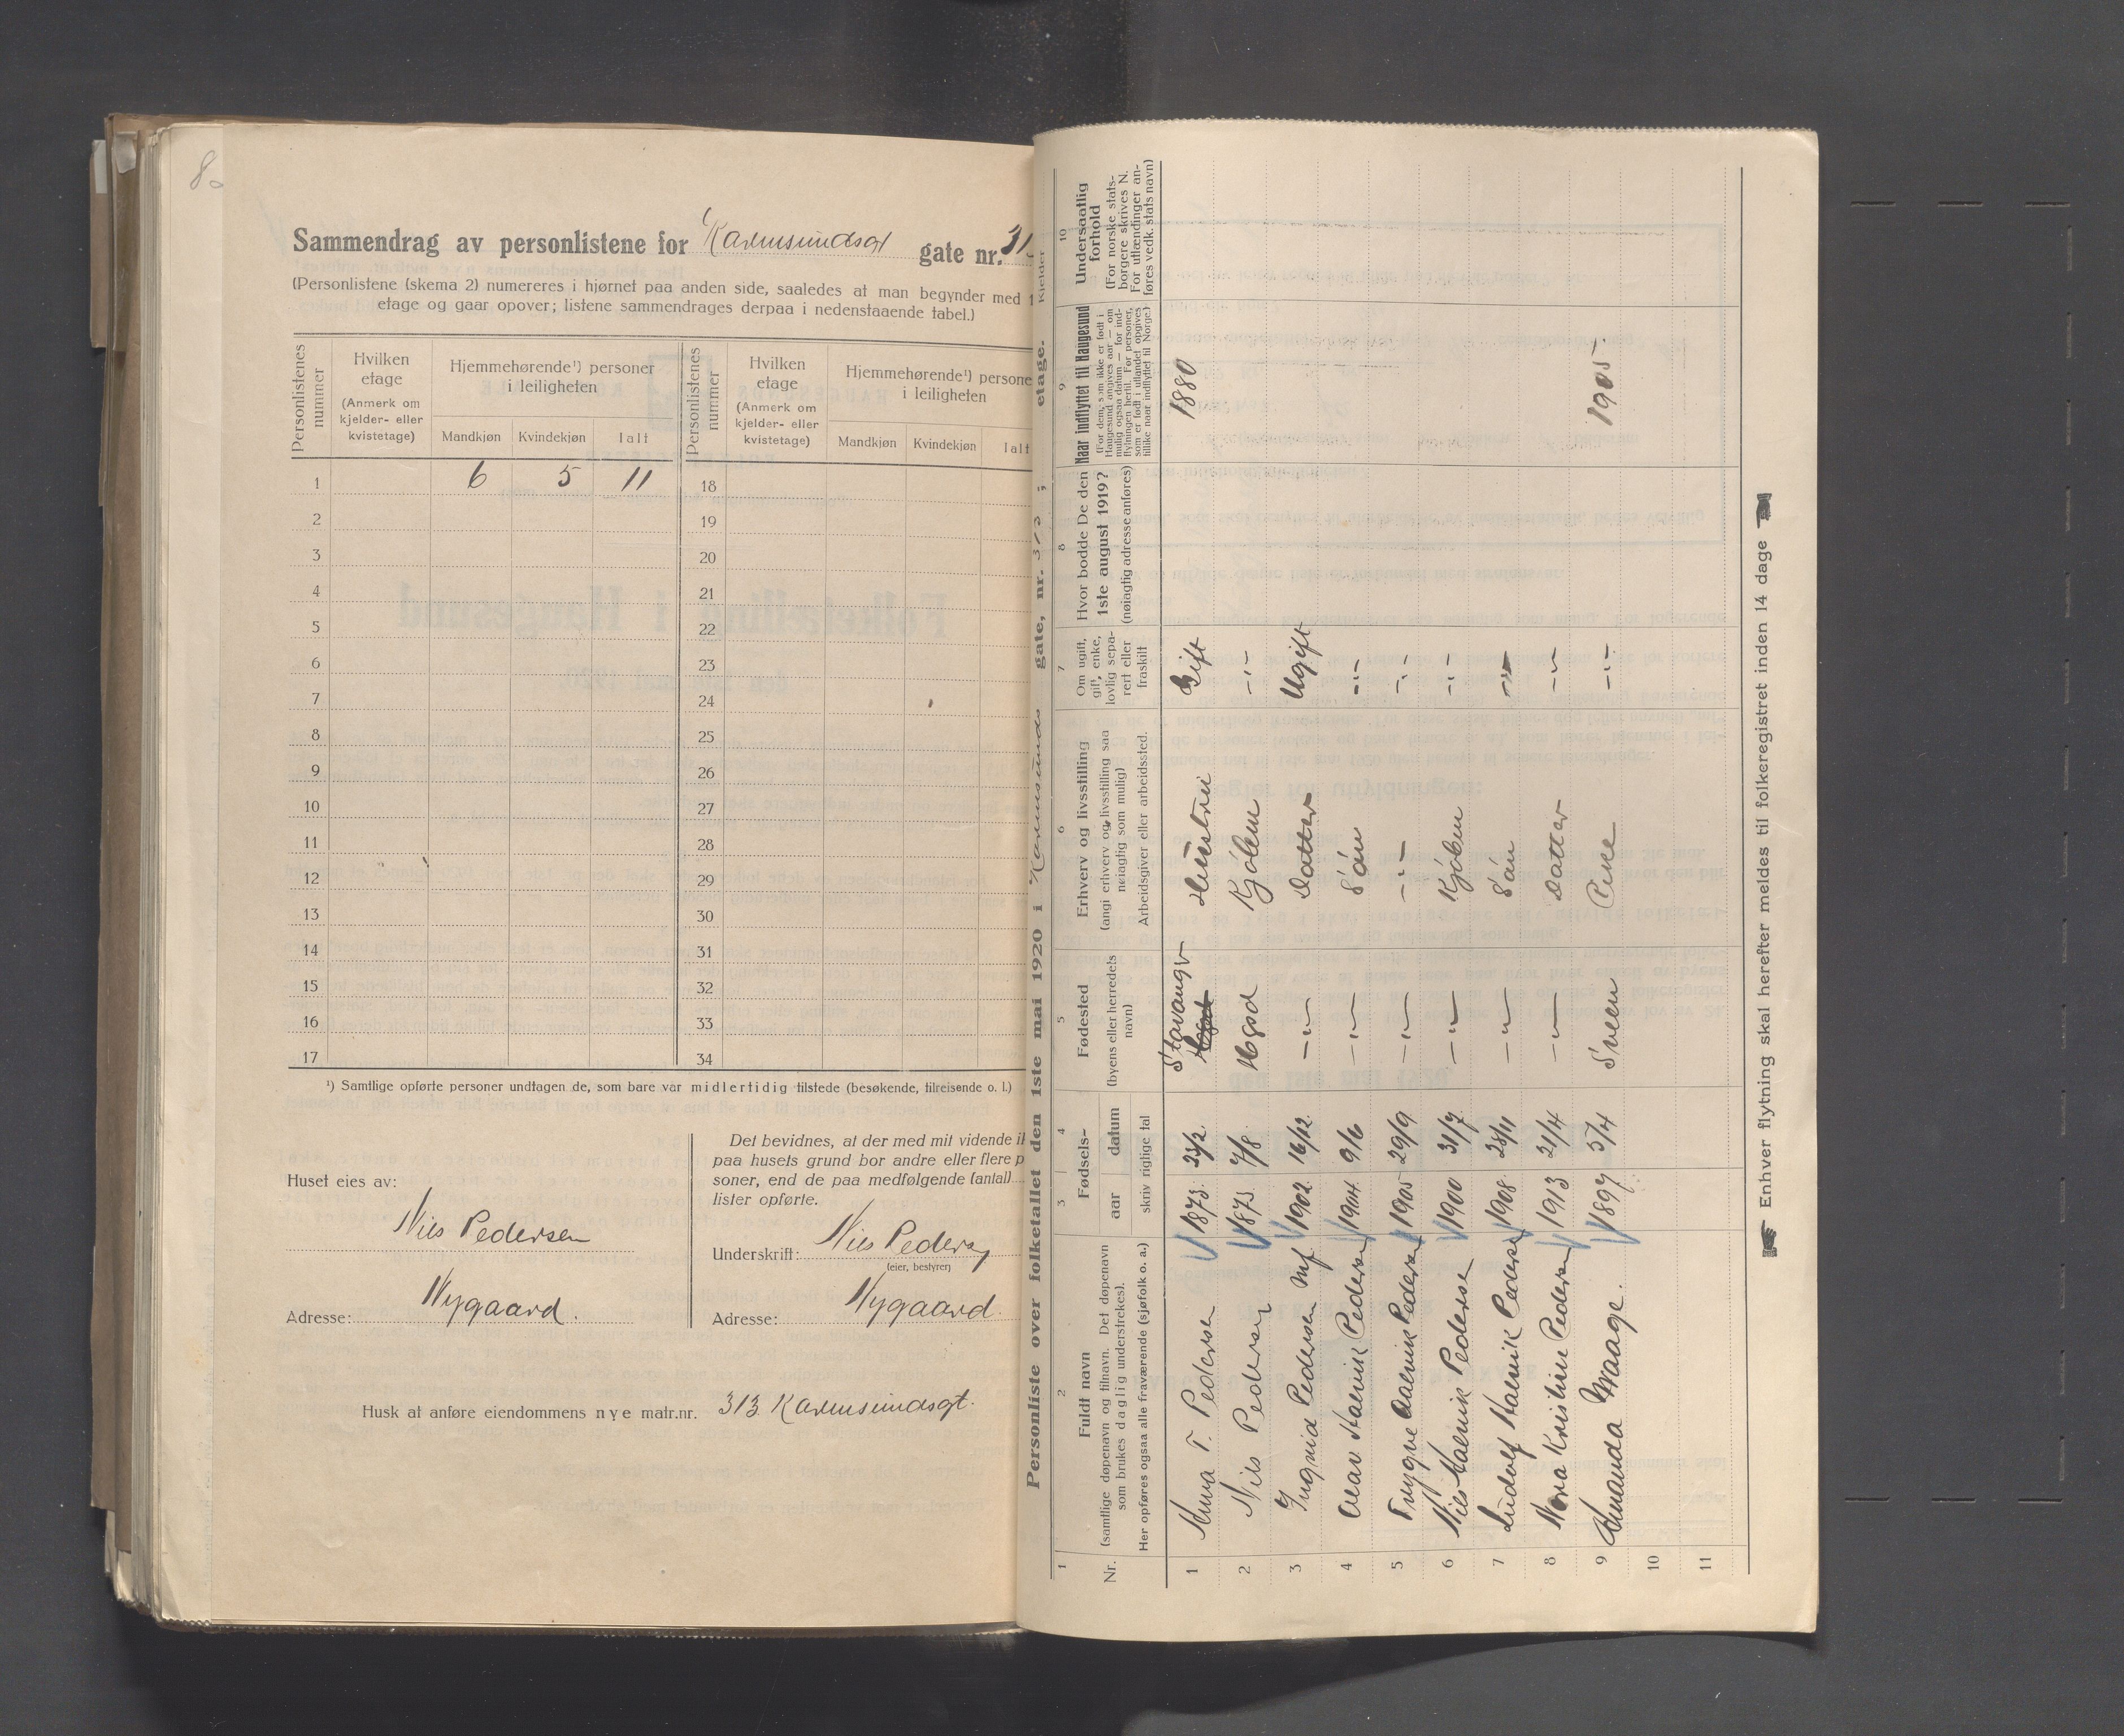 8
Sammendrag av personlistene for Karmsundsgt gate nr. 313
(Personlistene (skema 2) numereres i hjørnet paa anden side, saaledes at man begynder med 1
etage og gaar opover; listene sammendrages derpaa i nedenstaaende tabel.)
Personlistenes nummer | Hvilken etage (Anmerk om kjelder- eller kvistetage) | Hjemmehørende¹) personer i leiligheten | Personlistenes nummer | Hvilken etage (Anmerk om kjelder- eller kvistetage) | Hjemmehørende¹) persone i leiligheten
Mandkjøn | Kvindekjøn | Ialt | Mandkjøn | Kvindekjøn | Ialt
1 6 5 11 18
2 19
3 20
4 21
5 22
6 23
7 24
8 25
9 26
10 27
11 28
12 29
13 30
14 31
15 32
16 33
17 34
¹) Samtlige opførte personer undtagen de, som bare var midlertidig tilstede (besøkende, tilreisende o. l.)
Huset eies av:
Nils Pedersen
Adresse: Nygaard.
Det bevidnes, at der med mit vidende i
paa husets grund bor andre eller flere p
soner, end de paa medfølgende (antal)
lister opførte.
Underskrift: Nils Pedersen
(eier, bestyrer)
Adresse: Nygaard.
Husk at anføre eiendommens nye matr.nr. 313 Karmsundsgt.
Personliste over folketallet den 1ste mai 1920 i Karmsunds gate, nr. 313 ; etage.
Kjelder
1 Nr.
2 Fuldt navn (samtlige døpenavn og tilnavn. Det døpenavn som brukes daglig understrekes). Her opføres ogsaa alle fraværende (sjøfolk o. a.)
3 4 Fødsels- aar datum skriv riglige tal
5 Fødested (byens eller herredets navn)
6 Erhverv og livsstilling (angi erhverv og livsstilling saa nøiagtig som mulig) Arbeidsgiver eller arbeidssted.
7 Om ugift, gift, enke, lovlig separert eller fraskilt
8 Hvor bodde De den 1ste august 1919? (nøiagtig adresse anføres)
9 Naar indflyttet til Haugesund (For dem, som ikke er født i Haugesund angives aar — om mulig ogsaa datum — for indflytningen hertil. For personer, som er født i utlandet opgives tillike naar indflyttet til Norge.)
10 Undersaatlig forhold (For norske statsborgere skrives N. For utlændinger anføres vedk. stats navn)
1 Anna T. Pedersen 1873. Stavanger Hustru Gift 1880
2 Nils Pedersen 1873. 7/8 Hgsd Kjøbm -"-
3 Ingrid Pedersen 1902 16/12 -"- Datter Ugift
4 Henrik Pedersen 1904. 9/6 -"- Søn -"-
5 Trygve Henrik Pedersen 1905 29/9 -"- -"- -"-
6 Nils Henrik Pedersen 1900 31/7 -"- Kjøbm -"-
7 Ludolf Henrik Pedersen 1908 28/11 -"- Søn -"-
8 Nora Kristine Pedersen 1913 21/4 -"- Datter -"-
9 Amanda Waage. 1897 5/4 Sveen Pike -"- 1905.
10
11
Enhver flytning skal herefter meldes til folkeregistret inden 14 dage